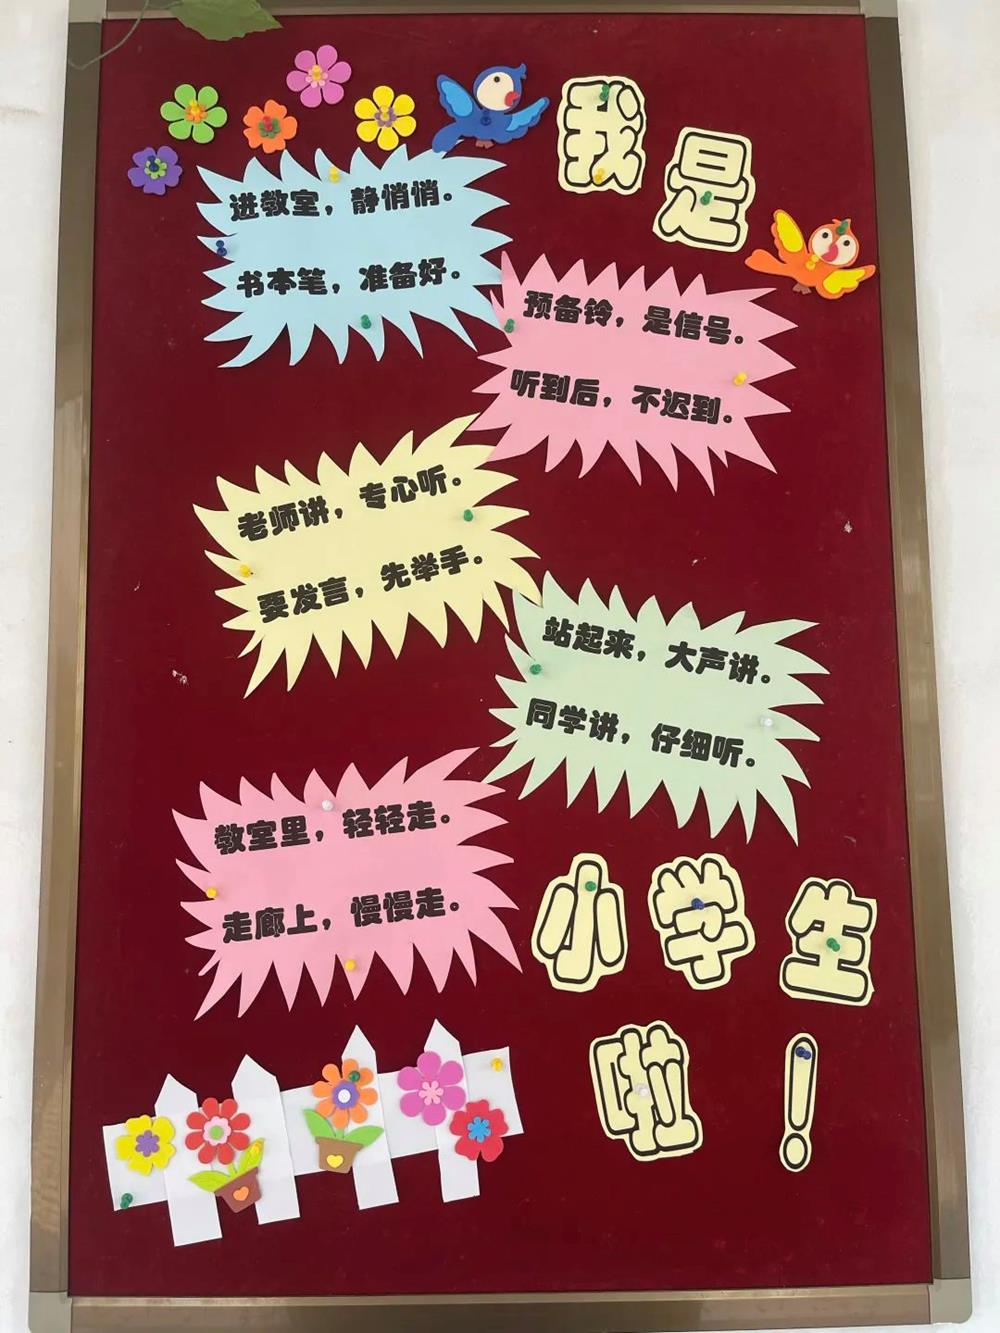 我是
进教室，静悄悄。
书本笔，准备好。
预备铃，是信号。
听到后，不迟到。
老师讲，专心听。
要发言，先举手。
站起来，大声讲。
同学讲，仔细听。
教室里，轻轻走。
走廊上，慢慢走。
小学生
啦！